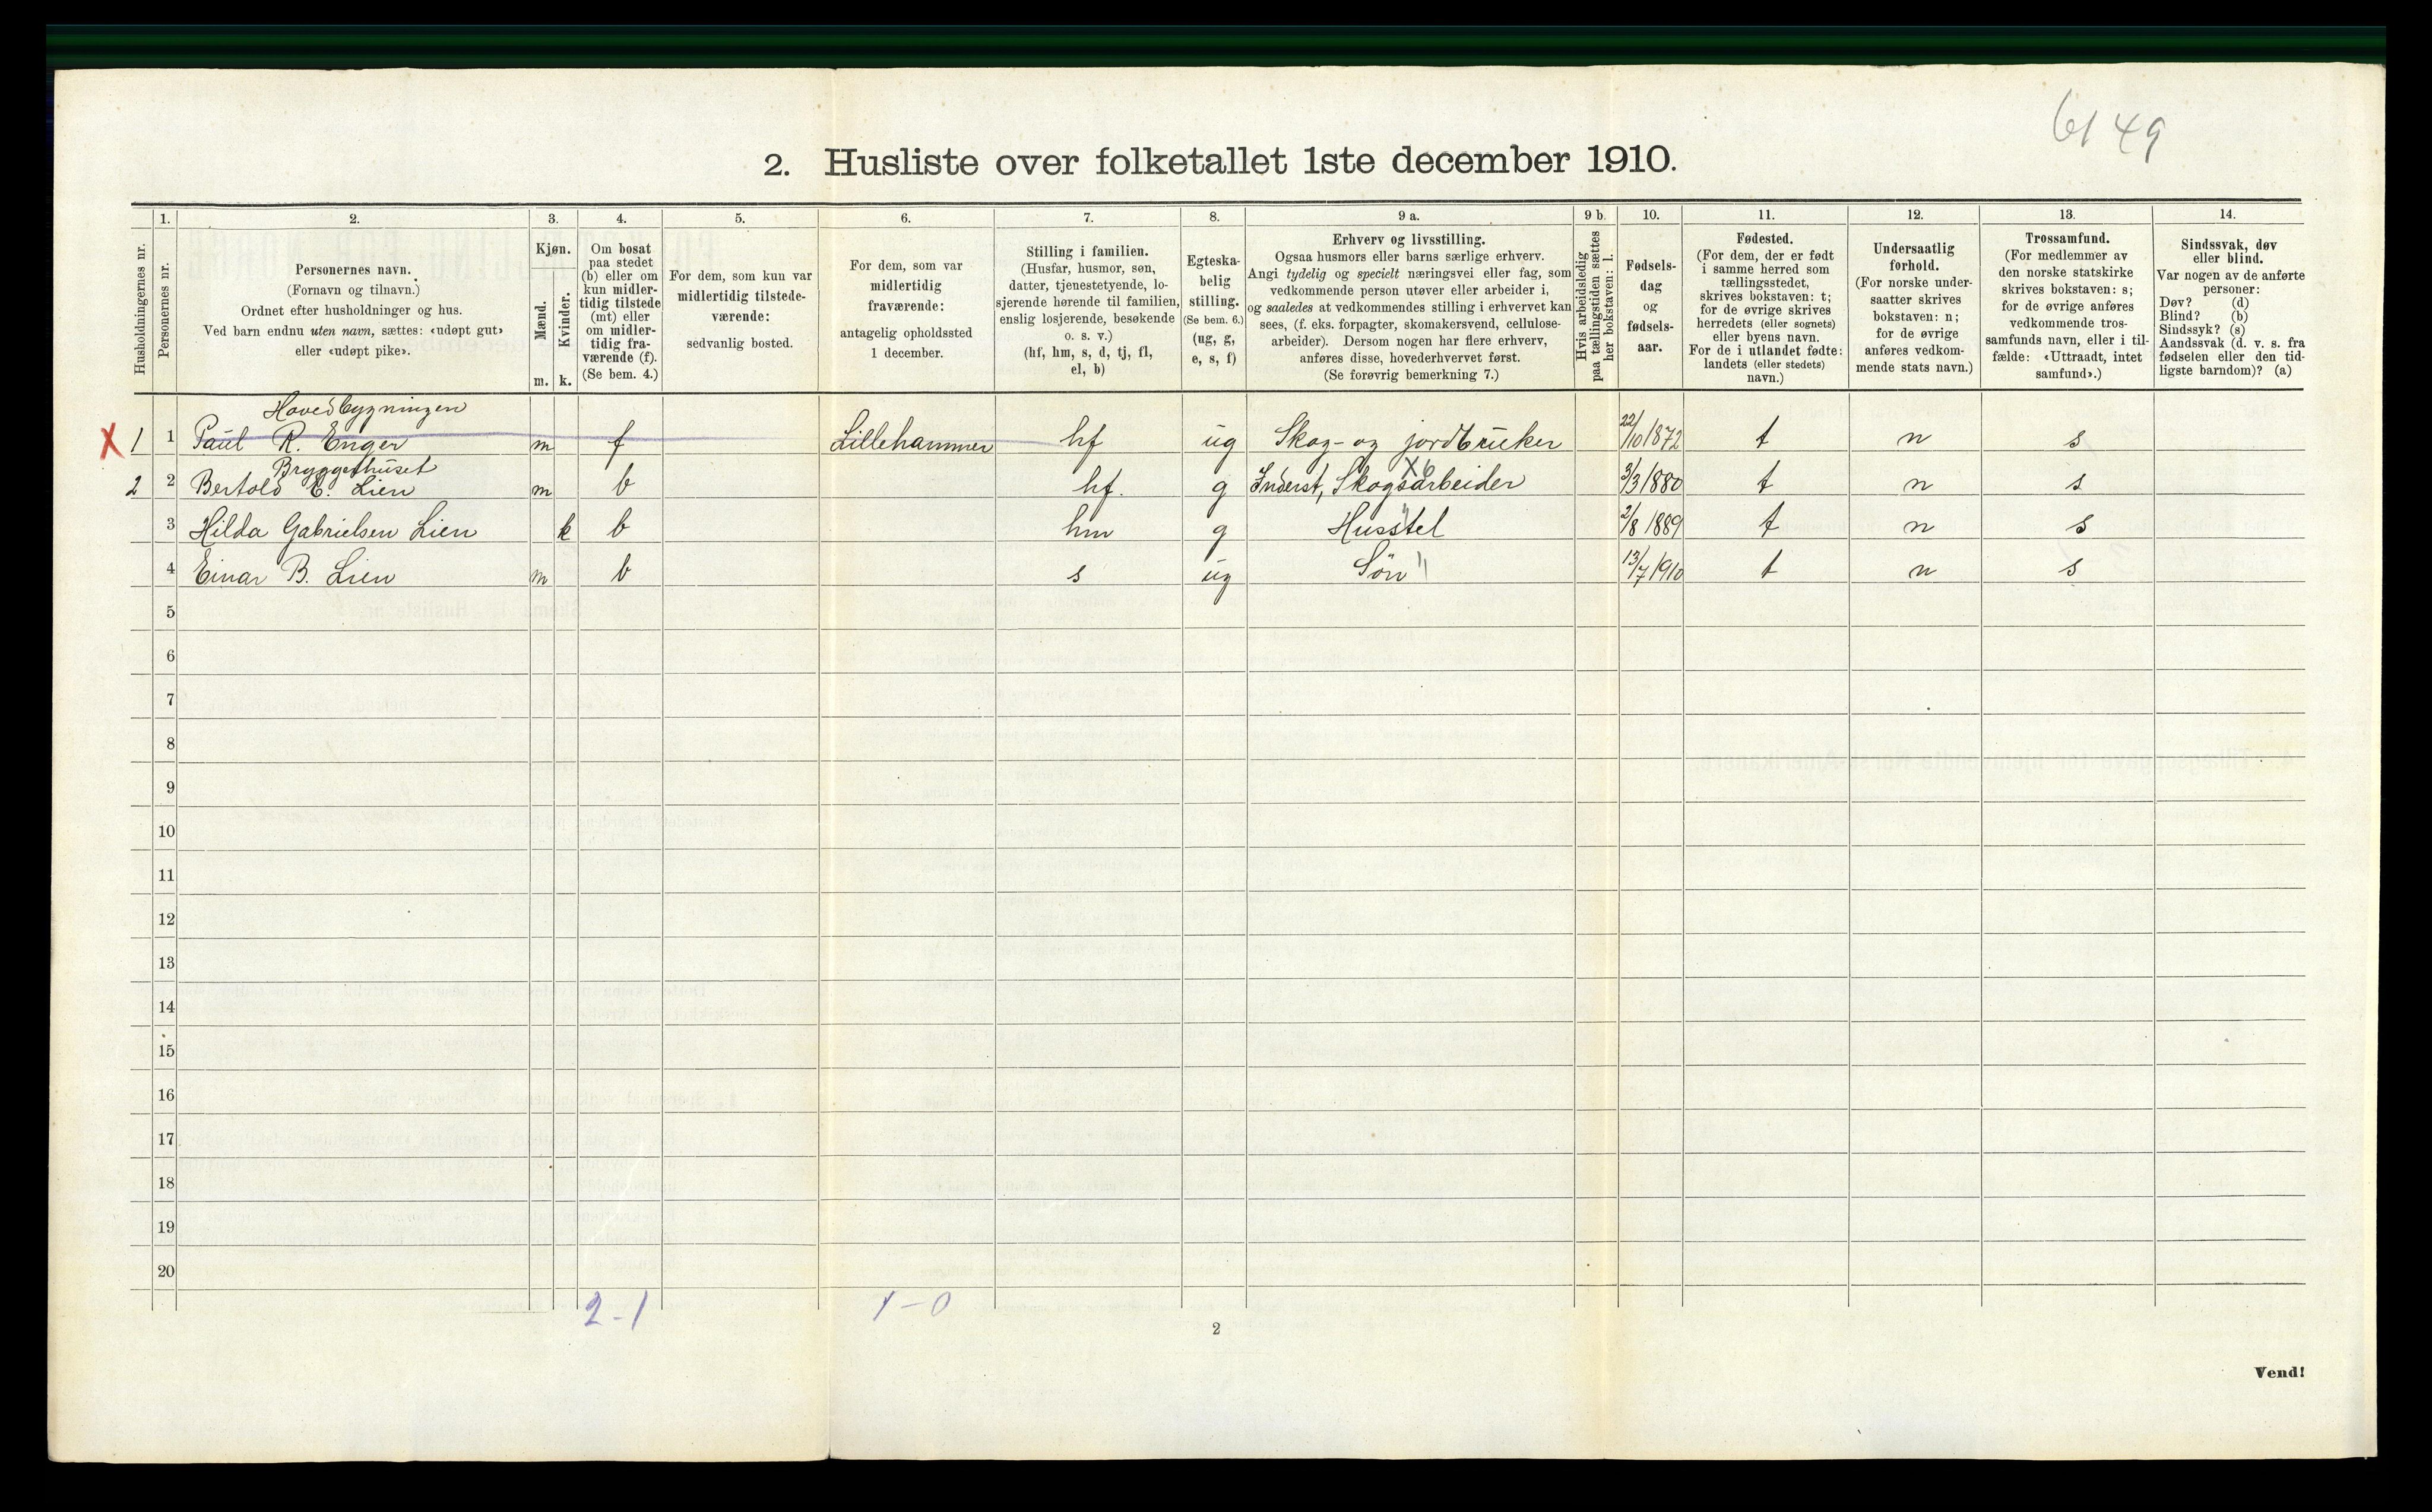 6149
2. Husliste over folketallet 1ste december 1910.
Husholdningernes nr.
1.
Personernes nr.
2.
Personernes navn.
(Fornavn og tilnavn.)
Ordnet efter husholdninger og hus.
Ved barn endnu uten navn, sættes: «udøpt gut»
eller «udøpt pike».
3.
Kjøn.
Mænd.
m.
Kvinder.
k.
4.
Om bosat
paa stedet
(b) eller om
kun midler-
tidig tilstede
(mt) eller
om midler-
tidig fra-
værende (f).
(Se bem. 4.)
5.
For dem, som kun var
midlertidig tilstede-
værende:
sedvanlig bosted.
6.
For dem, som var
midlertidig
fraværende:
antagelig opholdssted
1 december.
7.
Stilling i familien.
(Husfar, husmor, søn,
datter, tjenestetyende, lo-
sjerende hørende til familien,
enslig losjerende, besøkende
o. s. v.)
(hf, hm, s, d, tj, fl,
el, b)
8.
Egteska-
belig
stilling.
(Se bem. 6.)
(ug, g,
e, s, f)
9 a.
Erhverv og livsstilling.
Ogsaa husmors eller barns særlige erhverv.
Angi tydelig og specielt næringsvei eller fag, som
vedkommende person utøver eller arbeider i,
og saaledes at vedkommendes stilling i erhvervet kan
sees, (f. eks. forpagter, skomakersvend, cellulose-
arbeider). Dersom nogen har flere erhverv,
anføres disse, hovederhvervet først.
(Se forøvrig bemerkning 7.)
9 b.
Hvis arbeidsledig
paa tællingstiden sættes
her bokstaven: l.
10.
Fødsels-
dag
og
fødsels-
aar.
11.
Fødested.
(For dem, der er født
i samme herred som
tællingsstedet,
skrives bokstaven: t;
for de øvrige skrives
herredets (eller sognets)
eller byens navn.
For de i utlandet fødte:
landets (eller stedets)
navn.)
12.
Undersaatlig
forhold.
(For norske under-
saatter skrives
bokstaven: n;
for de øvrige
anføres vedkom-
mende stats navn.)
13.
Trossamfund.
(For medlemmer av
den norske statskirke
skrives bokstaven: s;
for de øvrige anføres
vedkommende tros-
samfunds navn, eller i til-
fælde: «Uttraadt, intet
samfund».)
14.
Sindssvak, døv
eller blind.
Var nogen av de anførte
personer:
Døv? (d)
Blind? (b)
Sindssyk? (s)
Aandssvak (d. v. s. fra
fødselen eller den tid-
ligste barndom)? (a)
Hovedbygningen
X 1 1 Paul R. Enger m f Lillehammer hf ug Skog- og jordbruker 22/10 1872 t n s
Bryggerhuset X6
2 2 Bertold E. Lien m b hf. g Inderst, Skogsarbeider 3/3 1880 t n s
3 Hilda Gabrielsen Lien k b hm g Husstel 2/8 1889 t n s
4 Einar B. Lien m b s ug Søn " 13/7 1910 t n s
5
6
7
8
9
10
11
12
13
14
15
16
17
18
19
20
2-1 1-0
2
Vend!